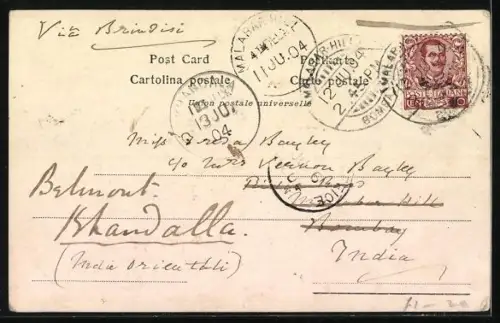 Via Brindisi
Post Card
Postkarte
Cartolina postale
Carte postale
Union postale universelle
MALABAR-HILL
11 JU. 04
MALABAR-HILL
12 JU 04
BOMBAY
KHANDALLA
13 JU.
04
POSTE ITALIANE
CENT. 10
Miss Bayley
c/o Mrs Vernon Bayley
Malabar Hill
Bombay
India
Belmont.
Khandalla.
(India Orientali)